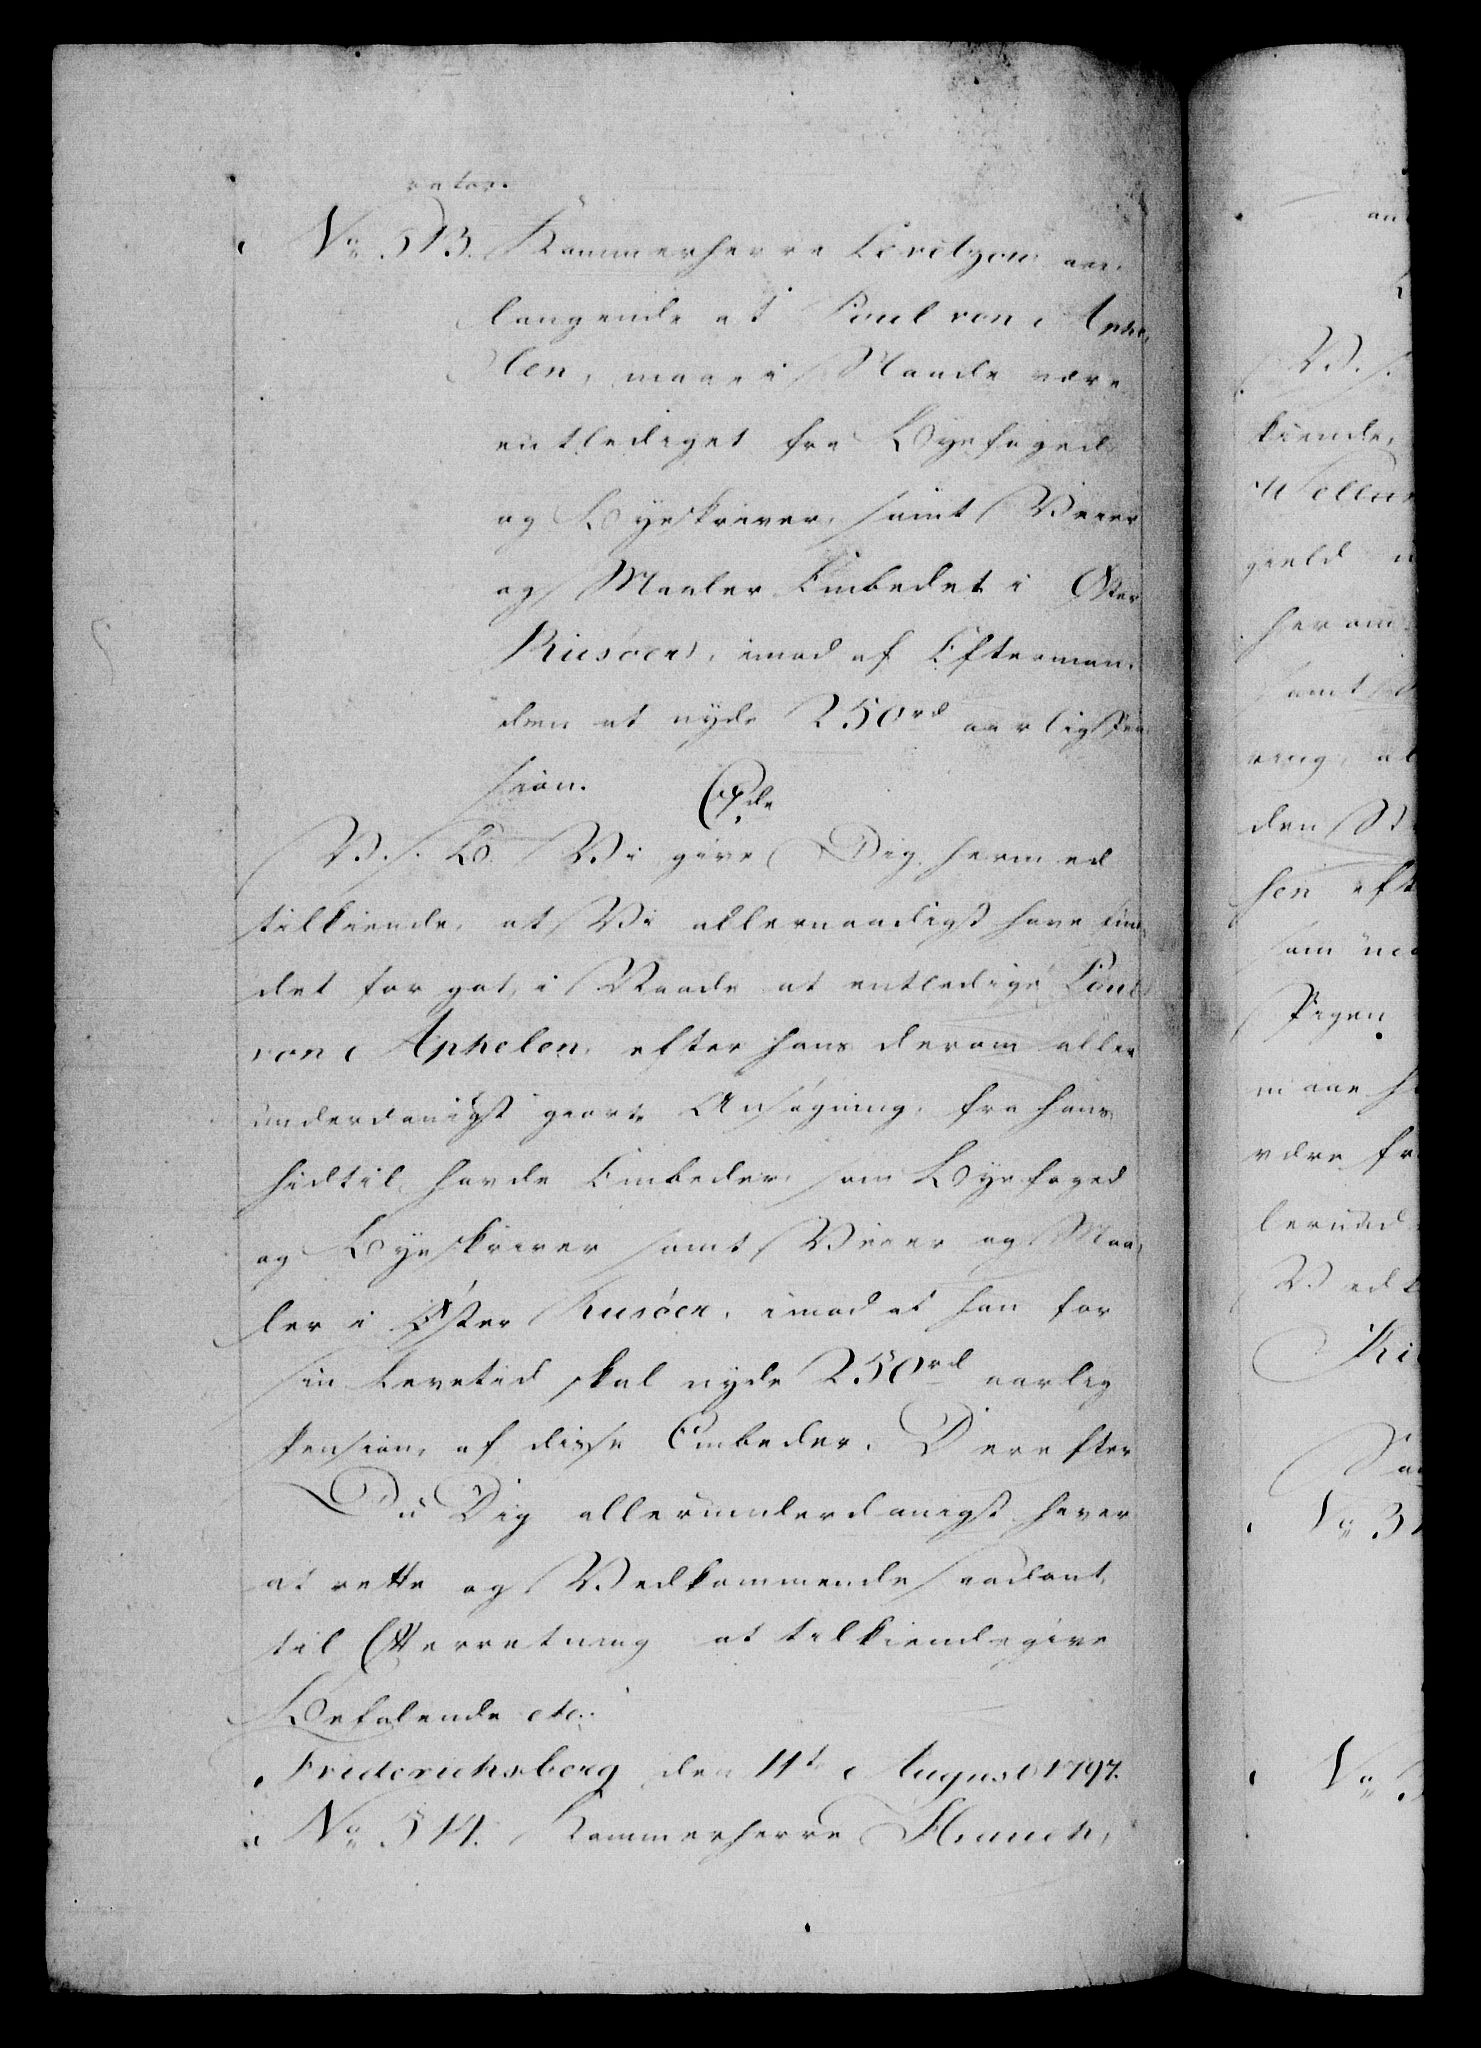 rator.
No 513. Kammerherre Levetzow an,
langende at Poul von Aphe,
len, maae i Naade være
entlediget fra Byefoged
og Byeskriver, samt Veier
og Maaler Embedet i Øster
Riisöer, imod af Efterman,
den at nyde 250rd aarlig Pen
sion. Cxde
V. S. B. Vi give Dig hermed
tilkiende, at Vi allernaadigst have fun,
det for got, i Naade at entledige Poul
von Aphelen, efter hans derom aller
underdanigst giorte Ansøgning, fra hans
hidtil havde Embeder, som Byefoged
og Byeskriver samt Veier og Maa,
ler i Øster Riisöer, imod at han for
sin Levetid skal nyde 250rd aarlig
Pension, af disse Embeder. Derefter
Du Dig allerunderdanigst haver
at rette og Vedkommende saadant
til Efterretning at tilkiendegive
Befalende etc:
Friderichsberg den 11te August 1797.
No 514. Kammerherre Hauch,
an
V. S.
kiende,
gield
herom
samt
ring, al
den
sen eft
som
Pigen
maae
være fr
lerund
Vedk
No 51
No